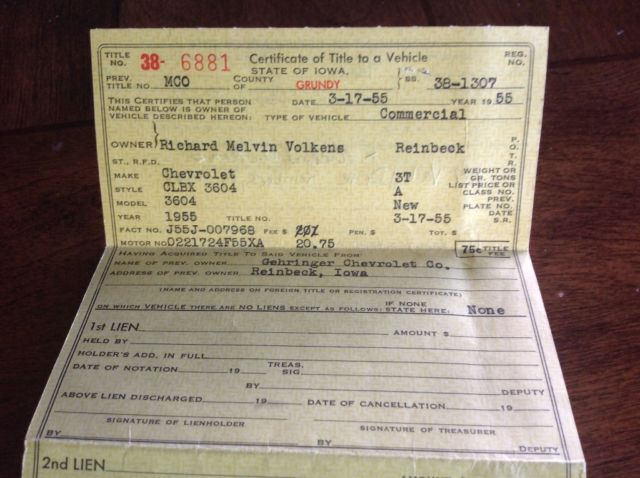 TITLE NO. 38- 6881 Certificate of Title to a Vehicle REG. NO.
STATE OF IOWA,
PREV. TITLE NO. MCO COUNTY OF GRUNDY } SS. 38-1307
THIS CERTIFIES THAT PERSON NAMED BELOW IS OWNER OF VEHICLE DESCRIBED HEREON: DATE 3-17-55 YEAR 19 55
TYPE OF VEHICLE Commercial
OWNER } Richard Melvin Volkens Reinbeck P. O. T. R.
ST., R.F.D.
MAKE Chevrolet 3T WEIGHT OR GR. TONS
STYLE CLBX 3604 A LIST PRICE OR CLASS NO.
MODEL 3604 New PREV. PLATE NO.
YEAR 1955 TITLE NO. 3-17-55 DATE S.R.
FACT NO. J55J-007968 FEE $ PEN. $ TOT. $
MOTOR NO 0221724F55XA 20.75 75c TITLE FEE
HAVING ACQUIRED TITLE TO SAID VEHICLE FROM
NAME OF PREV. OWNER Gehringer Chevrolet Co.
ADDRESS OF PREV. OWNER Reinbeck, Iowa
(NAME AND ADDRESS ON FOREIGN TITLE OR REGISTRATION CERTIFICATE)
ON WHICH VEHICLE THERE ARE NO LIENS EXCEPT AS FOLLOWS: IF NONE STATE HERE: None
1st LIEN AMOUNT $
HELD BY
HOLDER'S ADD. IN FULL
DATE OF NOTATION 19 TREAS. SIG.
BY DEPUTY
ABOVE LIEN DISCHARGED 19 DATE OF CANCELLATION 19
SIGNATURE OF LIENHOLDER SIGNATURE OF TREASURER
BY BY DEPUTY
2nd LIEN